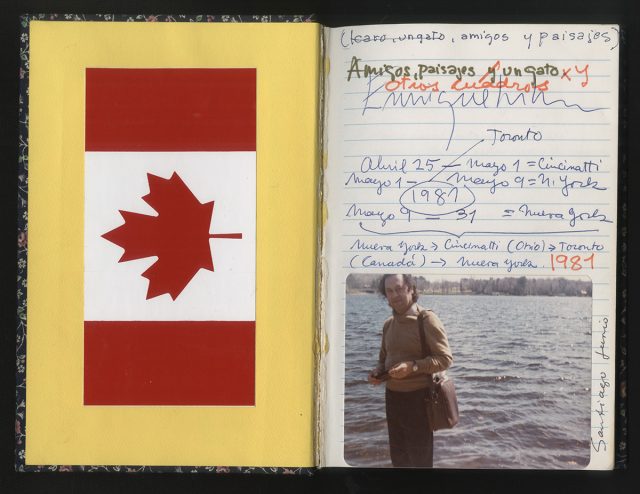 (Icaro, un gato, amigos y paisajes)
Amigos, paisajes y un gato x y
otros cuadros
Toronto
Abril 25 — Mayo 1 = Cincinatti
Mayo 1 — Mayo 9 = N. York
1981
Mayo 9 — 31 = Nueva York
Nueva York → Cincinatti (Ohio) → Toronto
(Canadá) → Nueva York. 1981
Santiago Junio